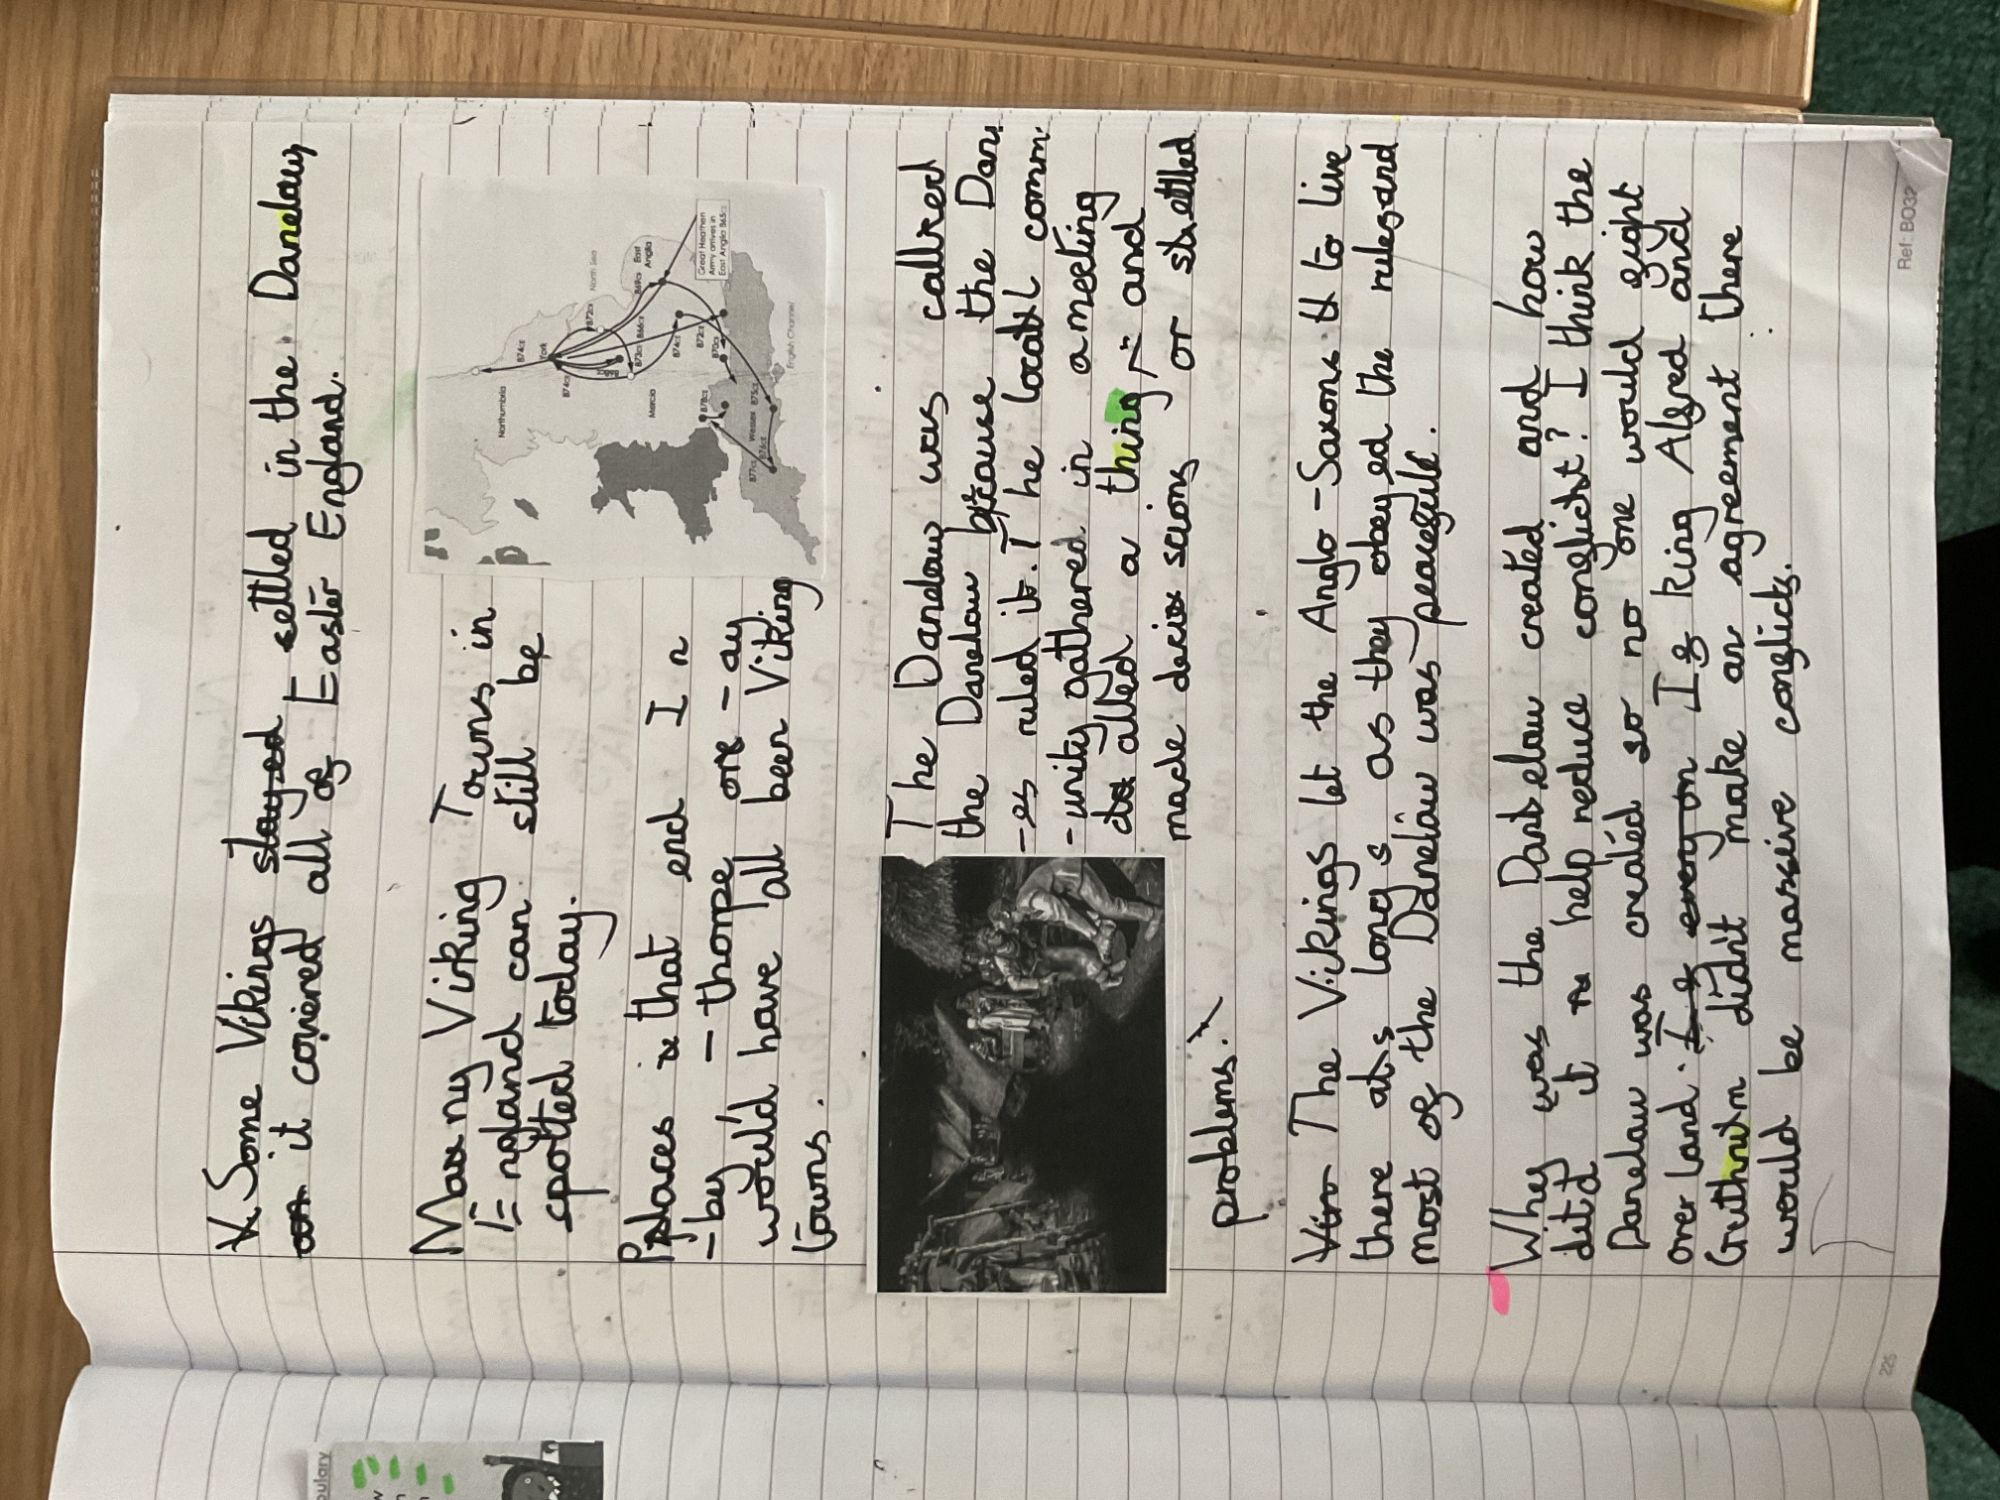 Some Vikings stayed settled in the Danelaw
it covered all of Easter England.
Many Viking Towns in
England can still be
spotted today.
Places that end In
-by -thorpe or -ay
would have all been Viking
towns.
874cs
Northumbria
York
North Sea
Mercia
East
Anglia
Great Heathen
Army arrives in
East Anglia 865cs
Wessex
English Channel
The Danelaw was called
the Danelaw because the Dan
-es ruled it. The local comm
-unity gathered in a meeting
called a thing and
made decisions or settled
problems.
The Vikings let the Anglo-Saxons to live
there as long as they obeyed the rules and
most of the Danelaw was peacefull.
Whey was the Danelaw created and how
did it help reduce conflicht? I think the
Danelaw was created so no one would fight
over land. If King Alfred and
Guthrum didn't make an agreement there
would be massive conflicts.
225
Ref: BO32
bulary